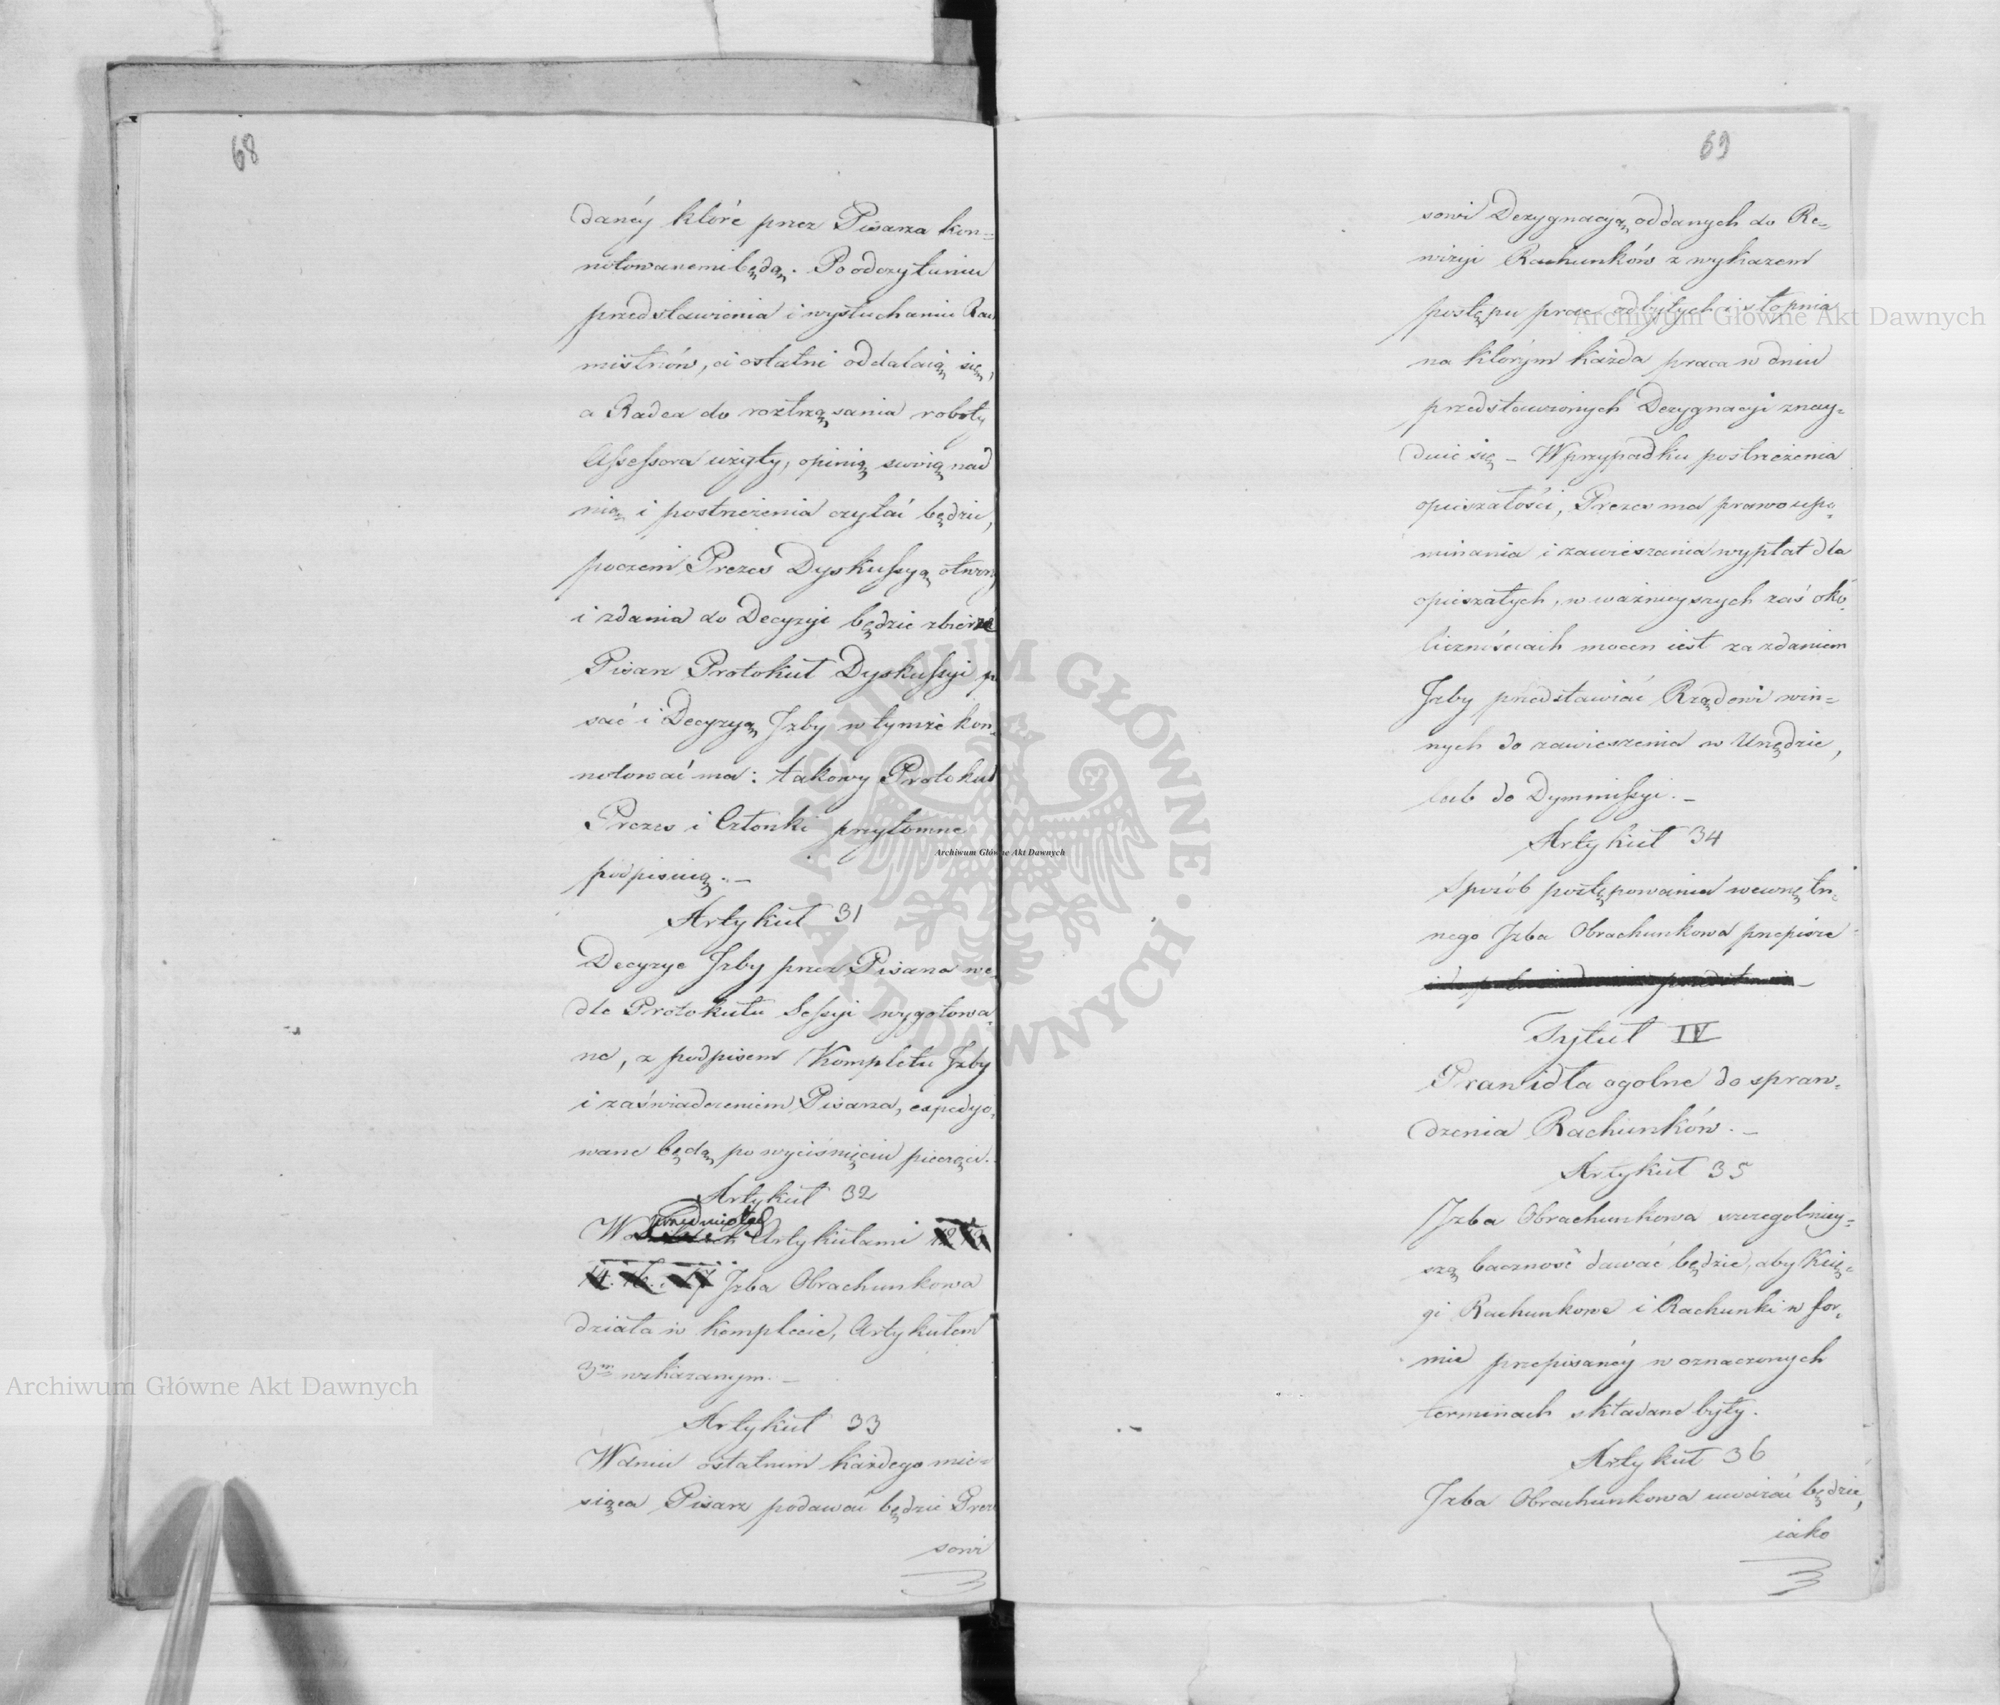 68
danéy któré przez Pisarza kon=
notowanemi będą. Po odczytaniu
przedstawienia i wysłuchaniu Rach
mistrzów, ci ostatni oddalaią się,
a Radca do roztrząsania roboty
Assessora użyty, opinią swoią nad
nią i postrzeżenia czytać będzie,
poczem Prezes Dyskussyą otworzy
i zdania do Decyzyi będzie zbierać
Pisarz Protokuł Dyskussyi pi
sać i Decyzyą Jzby w tymże kon=
notować ma: takowy Protokuł
Prezes i Członki przytomne
podpisuią. —
Artykuł 31
Decyzye Jzby przez Pisarza we=
dle Protokułu Sessyi wygotowa=
ne, z podpisem Kompletu Jzby
i zaświadczeniem Pisarza, expedyo=
wane będą po wyciśnięciu pieczęci.
Artykuł 32
przedmiotach
W Artykułami 12 13
14. 16. 17 Jzba Obrachunkowa
działa w komplecie, Artykułem
3m wskazanym. —
Artykuł 33
W dniu ostatnim każdego mie=
siąca Pisarz podawać będzie Preze
sowi
69
sowi Dezygnacyą oddanych do Re=
wizyi Rachunków z wykazem
postępu prac odbytych i stopnia
na którym każda praca w dniu
przedstawionych Dezygnacyi znay=
duie się — W przypadku postrzeżenia
opieszałości, Prezes ma prawo upo=
minania i zawieszania wypłat dla
opieszałych, w ważnieyszych zaś oko=
licznościach mocen iest za zdaniem
Jzby przedstawiać Rządowi win=
nych do zawieszenia w Urzędzie,
lub do Dymmissyi. —
Artykuł 34
Sposób postępowania wewnętrz=
nego Jzba Obrachunkowa przepisze
Tytuł IV
Prawidła ogolne do spraw=
dzenia Rachunków. —
Artykuł 35
Jzba Obrachunkowa szczegolniey=
szą baczność dawać będzie, aby Księ=
gi Rachunkowe i Rachunki w for=
mie przepisanéy w oznaczonych
terminach składane były.
Artykuł 36
Jzba Obrachunkowa uważać będzie,
iako
Archiwum Główne Akt Dawnych
Archiwum Główne Akt Dawnych
Archiwum Główne Akt Dawnych
ARCHIWUM GŁÓWNE · AKT DAWNYCH ·